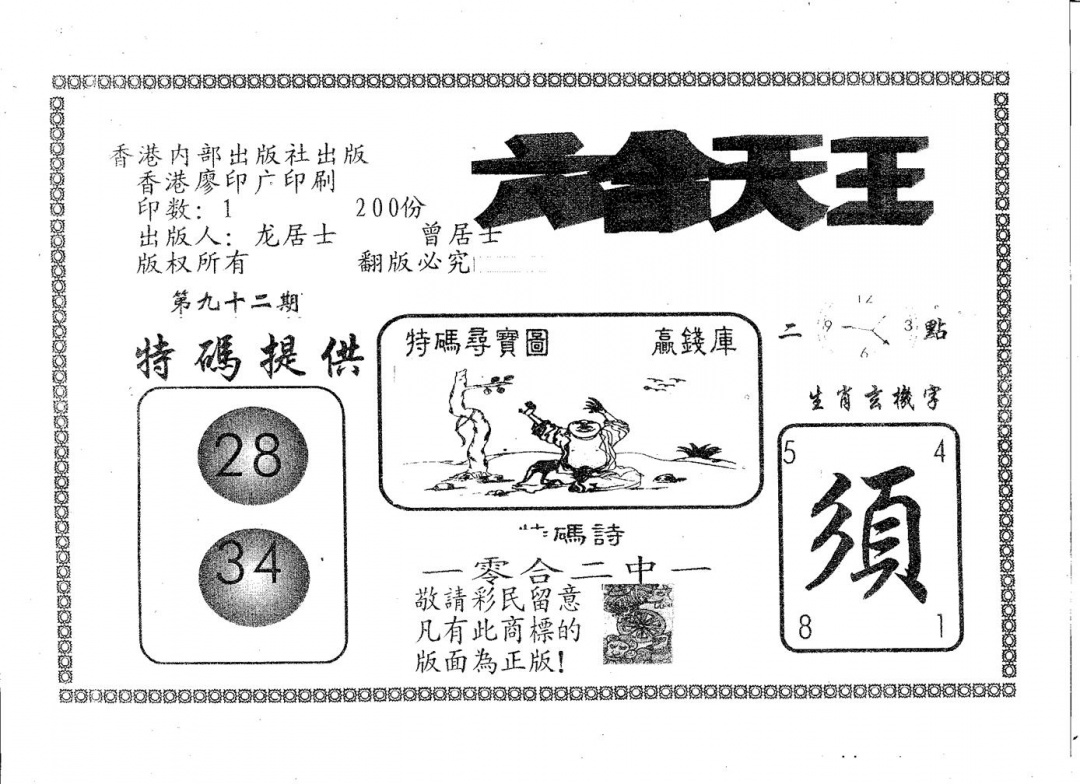 六合天王
香港内部出版社出版
香港廖印广印刷
印数：1 200份
出版人：龙居士 曾居士
版权所有 翻版必究
第九十二期
特碼提供
28
34
特碼尋寶圖 贏錢庫
碼詩
一零合二中一
敬請彩民留意
凡有此商標的
版面為正版!
二 點
12
9 3
6
生肖玄機字
5 4
須
8 1